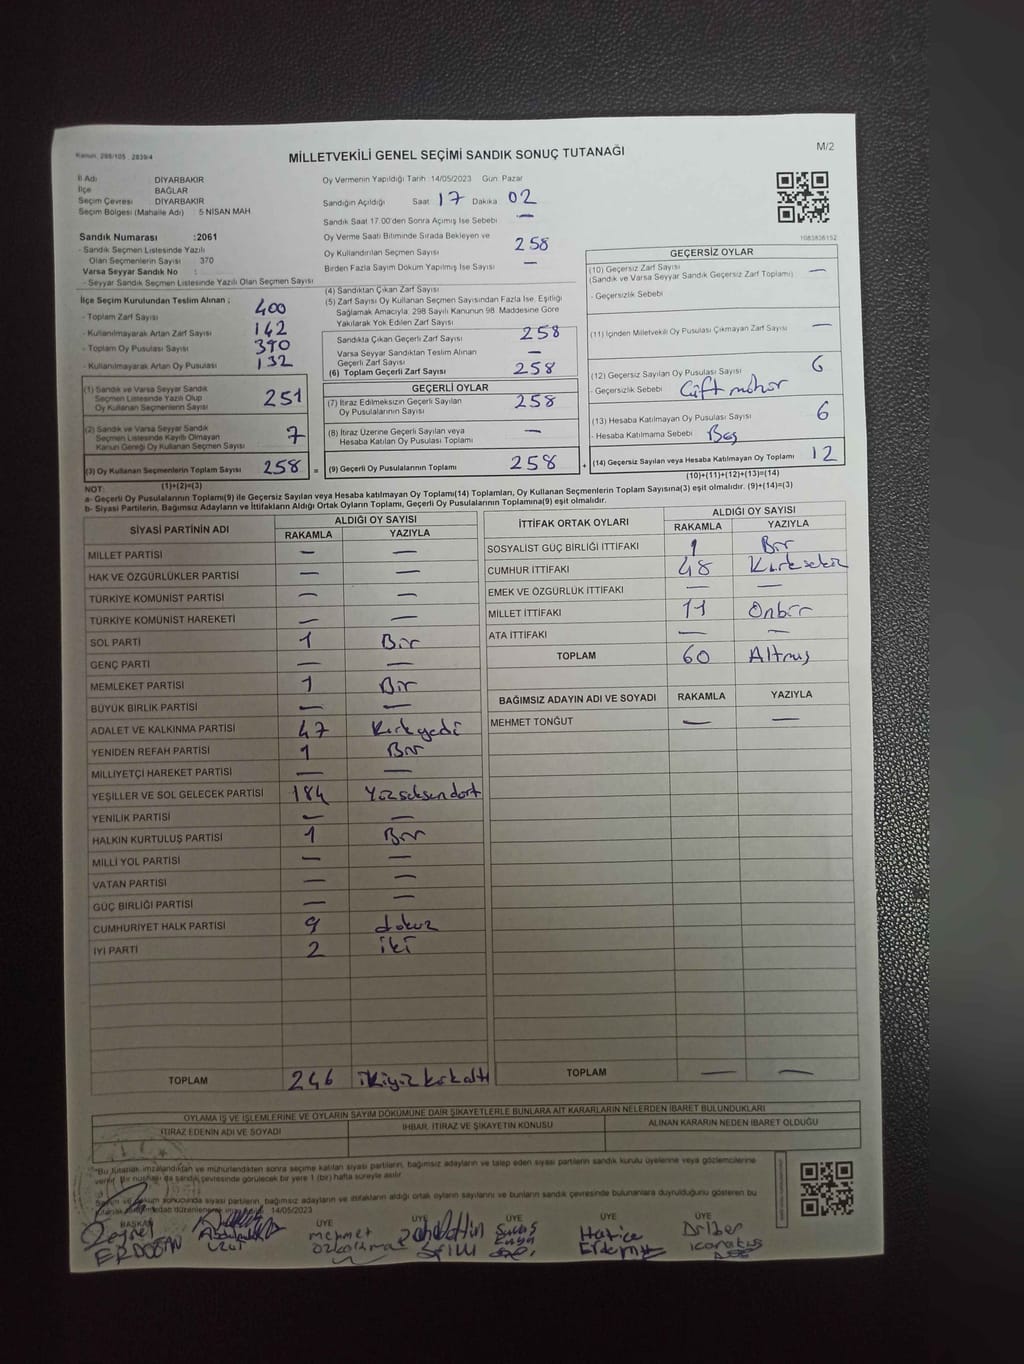 Kanun: 298/105 , 2839/4
MİLLETVEKİLİ GENEL SEÇİMİ SANDIK SONUÇ TUTANAĞI
M/2
İl Adı DİYARBAKIR
İlçe BAĞLAR
Seçim Çevresi DİYARBAKIR
Seçim Bölgesi (Mahalle Adı) 5 NİSAN MAH
Sandık Numarası :2061
- Sandık Seçmen Listesinde Yazılı
Olan Seçmenlerin Sayısı 370
Varsa Seyyar Sandık No :
- Seyyar Sandık Seçmen Listesinde Yazılı Olan Seçmen Sayısı
Oy Vermenin Yapıldığı Tarih :14/05/2023 Gün: Pazar
Sandığın Açıldığı Saat 17 Dakika 02
Sandık Saat 17.00'den Sonra Açılmış İse Sebebi —
Oy Verme Saati Bitiminde Sırada Bekleyen ve
Oy Kullandırılan Seçmen Sayısı 258
Birden Fazla Sayım Döküm Yapılmış İse Sayısı —
1083836152
İlçe Seçim Kurulundan Teslim Alınan ;
- Toplam Zarf Sayısı 400
- Kullanılmayarak Artan Zarf Sayısı 142
- Toplam Oy Pusulası Sayısı 390
- Kullanılmayarak Artan Oy Pusulası 132
(1) Sandık ve Varsa Seyyar Sandık
Seçmen Listesinde Yazılı Olup
Oy Kullanan Seçmenlerin Sayısı 251
(2) Sandık ve Varsa Seyyar Sandık
Seçmen Listesinde Kayıtlı Olmayan
Kanun Gereği Oy Kullanan Seçmen Sayısı 7
(3) Oy Kullanan Seçmenlerin Toplam Sayısı 258 =
(1)+(2)=(3)
(4) Sandıktan Çıkan Zarf Sayısı
(5) Zarf Sayısı Oy Kullanan Seçmen Sayısından Fazla İse, Eşitliği
Sağlamak Amacıyla, 298 Sayılı Kanunun 98. Maddesine Göre
Yakılarak Yok Edilen Zarf Sayısı
Sandıkta Çıkan Geçerli Zarf Sayısı 258
Varsa Seyyar Sandıktan Teslim Alınan
Geçerli Zarf Sayısı —
(6) Toplam Geçerli Zarf Sayısı 258
GEÇERLİ OYLAR
(7) İtiraz Edilmeksizin Geçerli Sayılan
Oy Pusulalarının Sayısı 258
(8) İtiraz Üzerine Geçerli Sayılan veya
Hesaba Katılan Oy Pusulası Toplamı —
(9) Geçerli Oy Pusulalarının Toplamı 258 +
GEÇERSİZ OYLAR
(10) Geçersiz Zarf Sayısı
(Sandık ve Varsa Seyyar Sandık Geçersiz Zarf Toplamı) —
- Geçersizlik Sebebi
(11) İçinden Milletvekili Oy Pusulası Çıkmayan Zarf Sayısı —
(12) Geçersiz Sayılan Oy Pusulası Sayısı 6
- Geçersizlik Sebebi Çift mühür
(13) Hesaba Katılmayan Oy Pusulası Sayısı 6
- Hesaba Katılmama Sebebi Boş
(14) Geçersiz Sayılan veya Hesaba Katılmayan Oy Toplamı 12
(10)+(11)+(12)+(13)=(14)
NOT:
a- Geçerli Oy Pusulalarının Toplamı(9) ile Geçersiz Sayılan veya Hesaba katılmayan Oy Toplamı(14) Toplamları, Oy Kullanan Seçmenlerin Toplam Sayısına(3) eşit olmalıdır. (9)+(14)=(3)
b- Siyasi Partilerin, Bağımsız Adayların ve İttifakların Aldığı Ortak Oyların Toplamı, Geçerli Oy Pusulalarının Toplamına(9) eşit olmalıdır.
SİYASİ PARTİNİN ADI ALDIĞI OY SAYISI
RAKAMLA YAZIYLA
MİLLET PARTİSİ — —
HAK VE ÖZGÜRLÜKLER PARTİSİ — —
TÜRKİYE KOMÜNİST PARTİSİ — —
TÜRKİYE KOMÜNİST HAREKETİ — —
SOL PARTİ 1 Bir
GENÇ PARTİ — —
MEMLEKET PARTİSİ 1 Bir
BÜYÜK BİRLİK PARTİSİ — —
ADALET VE KALKINMA PARTİSİ 47 Kırkyedi
YENİDEN REFAH PARTİSİ 1 Bir
MİLLİYETÇİ HAREKET PARTİSİ — —
YEŞİLLER VE SOL GELECEK PARTİSİ 184 Yüzseksendört
YENİLİK PARTİSİ — —
HALKIN KURTULUŞ PARTİSİ 1 Bir
MİLLİ YOL PARTİSİ — —
VATAN PARTİSİ — —
GÜÇ BİRLİĞİ PARTİSİ — —
CUMHURİYET HALK PARTİSİ 9 dokuz
İYİ PARTİ 2 iki
TOPLAM 246 ikiyüzkırkaltı
İTTİFAK ORTAK OYLARI ALDIĞI OY SAYISI
RAKAMLA YAZIYLA
SOSYALİST GÜÇ BİRLİĞİ İTTİFAKI 1 Bir
CUMHUR İTTİFAKI 48 Kırksekiz
EMEK VE ÖZGÜRLÜK İTTİFAKI — —
MİLLET İTTİFAKI 11 Onbir
ATA İTTİFAKI — —
TOPLAM 60 Altmış
BAĞIMSIZ ADAYIN ADI VE SOYADI RAKAMLA YAZIYLA
MEHMET TONĞUT — —
TOPLAM — —
OYLAMA İŞ VE İŞLEMLERİNE VE OYLARIN SAYIM DÖKÜMÜNE DAİR ŞİKAYETLERLE BUNLARA AİT KARARLARIN NELERDEN İBARET BULUNDUKLARI
İTİRAZ EDENİN ADI VE SOYADI İHBAR, İTİRAZ VE ŞİKAYETİN KONUSU ALINAN KARARIN NEDEN İBARET OLDUĞU
"Bu tutanak imzalandıktan ve mühürlendikten sonra seçime katılan siyasi partilerin, bağımsız adayların ve talep eden siyasi partilerin sandık kurulu üyelerine veya gözlemcilerine
verilir. Bir nüshası da sandık çevresinde görülecek bir yere 1 (bir) hafta süreyle asılır
Sayım ve döküm sonucunda siyasi partilerin, bağımsız adayların ve ittifakların aldığı ortak oyların sayılarını ve bunların sandık çevresinde bulunanlara duyrulduğunu gösteren bu
14/05/2023
BAŞKAN ÜYE ÜYE ÜYE ÜYE ÜYE
Zeynel ERDOĞAN
Mehmet
Hatice